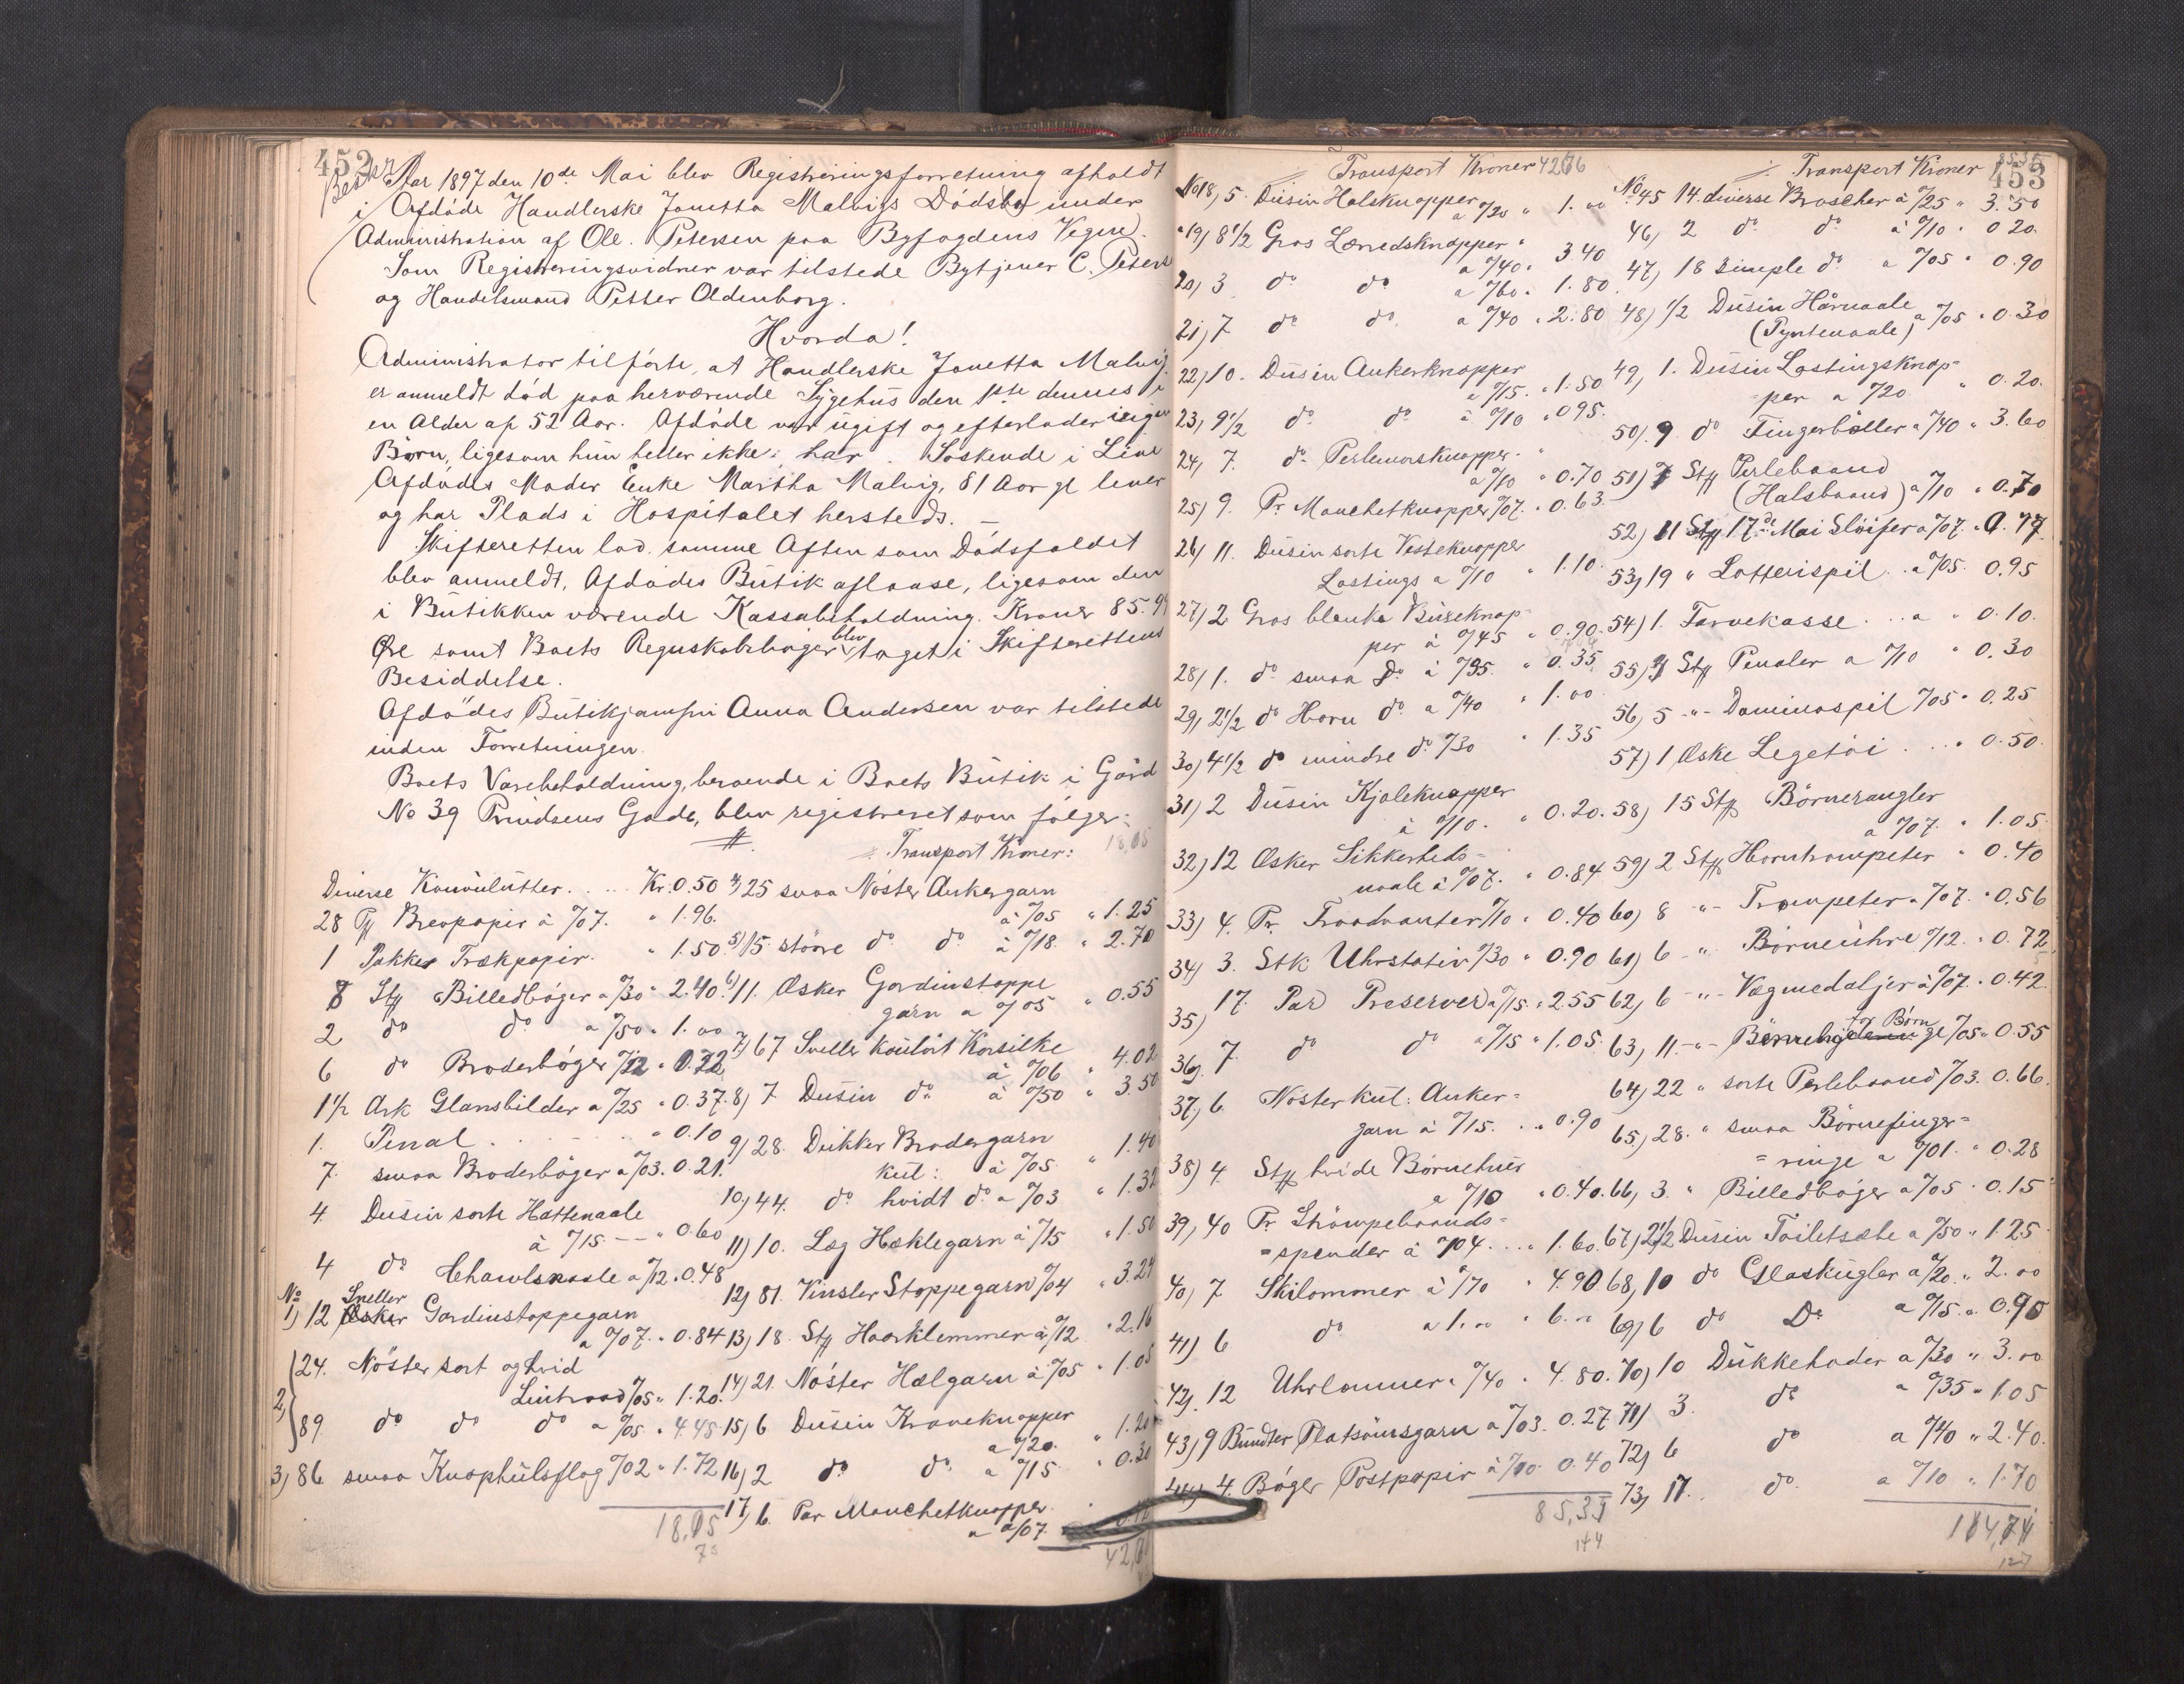 452
Beskr
Aar 1897 den 10de Mai blev Registreringsforretning afholdt
i Afdøde Handlerske Janetta Malvigs Dödsbo under
Administration af Ole. Petersen paa Byfogdens Vegne.
Som Registreringsvidner var tilstede Bytjener C. Peters
og Handelsmand Petter Oldenborg.
Hvorda!
Administrator tilförte, at Handlerske Janetta Malvig
er anmeldt död paa herværende Sygehus den 1ste dennes i
en Alder af 52 Aar. Afdöde var ugift og efterlader ingen
Börn, ligesom hun heller ikke har Söskende i Live
Afdödes Moder Enke Martha Malvig, 81 Aar gl lever
og har Plads i Hospitalet hersteds. —
Skifteretten lod samme Aften som Dödsfaldet
blev anmeldt, Afdödes Butik aflaase, ligesom den
i Butikken værende Kassabeholdning Kroner 85.94
Øre samt Boets Regnskabsböger blev taget i Skifterettens
Besiddelse.
Afdödes Butikjomfru Anna Andersen var tilstede
under Forretningen.
Boets Varebeholdning, beroende i Boets Butik i Gård
No 39 Prindsens Gade, blev registreret som fölger:
Diverse Konvolutter. . . . Kr. 0.50
28 Pk Brevpapir à %07. " 1.96.
1 Pakke Trækpapir. " 1.50.
8 Stk Billedböger a %30 " 2.40.
2 do do a %50 " 1.00
6 do Broderböger %12 " 0.72
1 1/2 Ark Glansbilder a %25 " 0.37.
1. Penal . . . . . " 0.10
7. smaa Broderböger a %03. 0.21.
4. Dusin sorte Hattenaale
à %15. — " 0.60
4 do Chawlsnaale a %12. 0.48
No Sneller
1) 12 Æsker Gardinstoppegarn
a %07. " 0.84
2) 24. Nöster sort og hvid
Lintraad %05 " 1.20.
89. do do do a %05 . 4.45.
3) 86 smaa Knaphulsflag %02 " 1.72
18,05
Transport Kroner: 18,05
4) 25 smaa Nöster Ankergarn
à %05 " 1.25
5) 15. större do do à %18. " 2.70
6) 11. Æsker Gardinstoppe
garn a %05 " 0.55
7) 67 Sneller koulört Korsilke
à %06 " 4.02
8) 7. Dusin do à %50 " 3.50
9) 28. Dukker Brodergarn
kul: à %05. " 1.40
10) 44. do hvidt do a %03 " 1.32
11) 10. Læg Hæklegarn à %15 " 1.50
12) 81. Vinsler Stoppegarn %04 " 3.24
13) 18. Stk Haarklemmer à %12 " 2.16
14) 21. Nöster Hælgarn à %05 " 1.05
15) 6 Dusin Kraveknapper
a %20. " 1.20
16) 2 do do a %15 " 0.30
17) 6. Par Manchetknapper
a %07
453
Transport Kroner
No 18) 5. Dusin Halsknapper
a %20 " 1.00
19) 8 1/2 Gros Lærredsknapper
a %40. 3.40
20) 3 do do a %60. 1.80
21) 7 do do. a %40 " 2.80
22) 10. Dusin Ankerknapper
a %15. " 1.50
23) 9 1/2 do do à %10 " 0.95.
24) 7. do Perlemorsknapper
a %10 " 0.70
25) 9. Pr. Manchetknapper %07. " 0.63.
26) 11. Dusin sorte Vesteknapper
Lastings a %10 " 1.10.
27) 2 Gros blanke Buxeknap-
per à %45 " 0.90.
28) 1. do smaa Do. à %35. " 0.35
29) 2 1/2 do Horn do. a %40 " 1.00
30) 4 1/2 do mindre do. %30 " 1.35
31) 2 Dusin Kjoleknapper
à %10. " 0.20.
32) 12 Æsker Sikkerheds-
naale à %07. " 0.84
33) 4. Pr. Traadvanter %10 " 0.40
34) 3. Stk Uhrstativ %30 " 0.90
35) 17. Par Preserver à %15. " 2.55
36) 7. do do a %15 " 1.05.
37) 6. Nöster kul: Anker=
garn à %15. . . 0.90
38) 4. Stk hvide Börnehuer
a %10 " 0.40.
39) 40 Pr. Strömpebaands=
=spender à %04. . . . 1.60.
40) 7 Skilommer à %70 " 4.90
41) 6 do a 1.00 " 6.00
42) 12 Uhrlommer. %40 " 4.80.
43) 9 Bundter Platsömsgarn a %03. 0.27
44) 4. Böger Postpapir à %10. 0.40
85,35
144
Transport Kroner
No. 45 14. diverse Broscher à %25 " 3.50
46) 2 do do à %10 " 0 20.
47) 18 Simple do a %05 " 0.90
48) 1/2 Dusin Hårnaale
(Pyntenaale) a %05 " 0.30
49) 1. Dusin Lastingsknap=
per a %20 " 0.20.
50) 9 do Fingerböller a %40 " 3.60
51) 7 Stk Perlebaand
(Halsbaand) a %10 " 0.70
52) 11 Stk 17de Mai Slöifer a %07. 0.77.
53) 19 " Lotterispil . a %05. 0.95
54) 1. Farvekasse. . . a " 0.10.
55) 3 Stk Penaler a %10 " 0.30
56) 5 -"- Dominospil %05 " 0.25
57) 1 Æske Legetöi. . . " 0.50.
58) 15 Stk Börnerangler
a %07. " 1.05.
59) 2 Stk Horntrompeter " 0.40
60) 8 -"- Trompeter a %07. " 0.56
61) 6 -"- Börneuhre %12. " 0.72
62) 6 -"- Vægmedaljer à %07. 0.42.
63) 11. -"- for Börn %05 " 0.55
64) 22 " sorte Perlebaand %03. 0.66.
65) 28. " smaa Börnefinger=
=ringe a %01. " 0.28
66) 3. " Billedböger a %05 " 0.15
67) 2 1/2 Dusin Toiletsæbe a %50 " 1.25
68) 10 do Glaskugler a %20. " 2.00
69) 6 do Do a %15. " 0.90
70) 10 Dukkehoder a %30 " 3.00
71) 3. do a %35 " 1.05
72) 6 do a %40 " 2.40.
73) 17. do. a %10 " 1.70